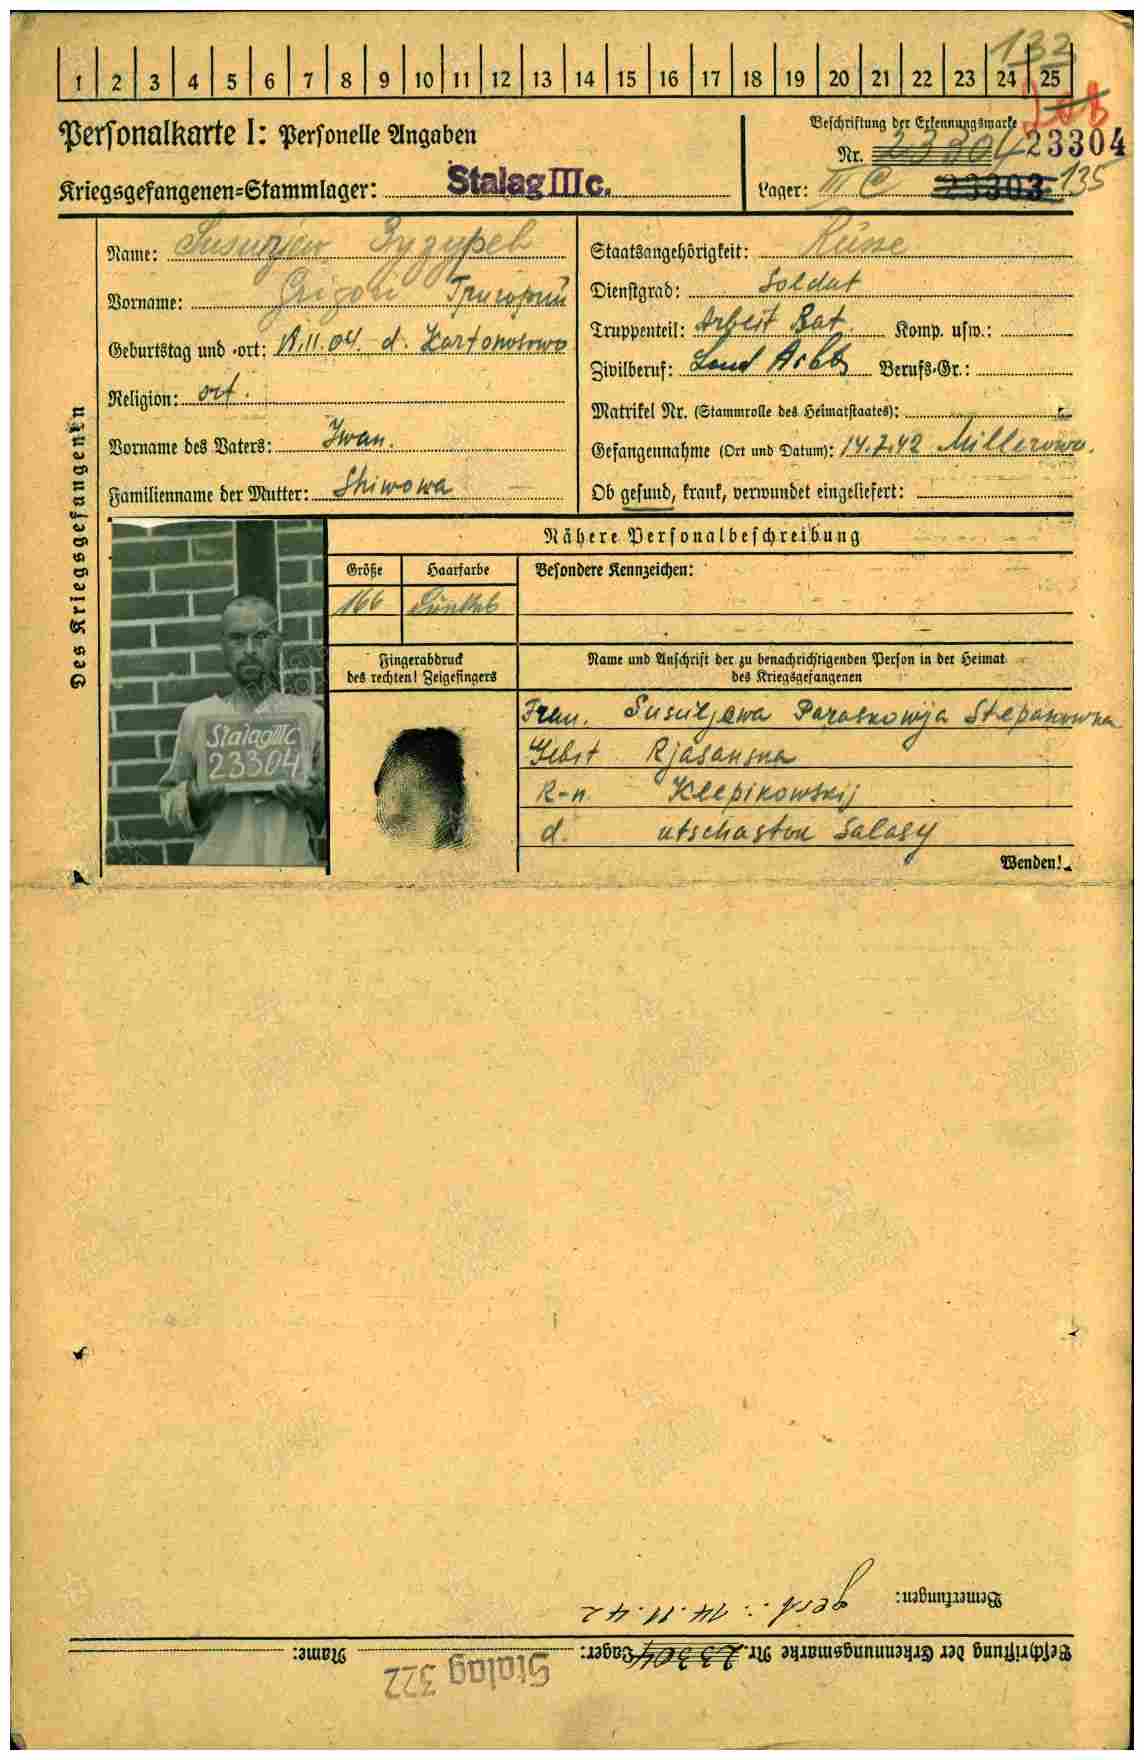 132
1 2 3 4 5 6 7 8 9 10 11 12 13 14 15 16 17 18 19 20 21 22 23 24 25
Personalkarte I: Personelle Angaben
Beschriftung der Erkennungsmarke
Nr. 23304 23304
Kriegsgefangenen-Stammlager: Stalag III c.
Lager: III C 23303 135
Des Kriegsgefangenen
Name:
Vorname: Grigori Григорий
Geburtstag und -ort: 18.11.04. d.
Religion: ort.
Vorname des Vaters: Iwan.
Familienname der Mutter: Shiwowa
Staatsangehörigkeit: Russe
Dienstgrad: Soldat
Truppenteil: Arbeit Bat. Komp. usw.:
Zivilberuf: Land Arbb Berufs-Gr.:
Matrikel Nr. (Stammrolle des Heimatstaates):
Gefangennahme (Ort und Datum): 14.7.42 Millerowo.
Ob gesund, krank, verwundet eingeliefert:
Nähere Personalbeschreibung
Größe Haarfarbe Besondere Kennzeichen:
166 Dunkel
Stalag III C
23304
Fingerabdruck
des rechten! Zeigefingers
Name und Anschrift der zu benachrichtigenden Person in der Heimat
des Kriegsgefangenen
Frau. Susuljewa Paraskowja Stepanowna
Gebit Rjasanska
R-n. Klepikowskij
d. utschastok Salasy
Wenden!
Bemerkungen: gest.: 14.11.42
Beschriftung der Erkennungsmarke Nr. 23304 Lager: Name:
Stalag 322